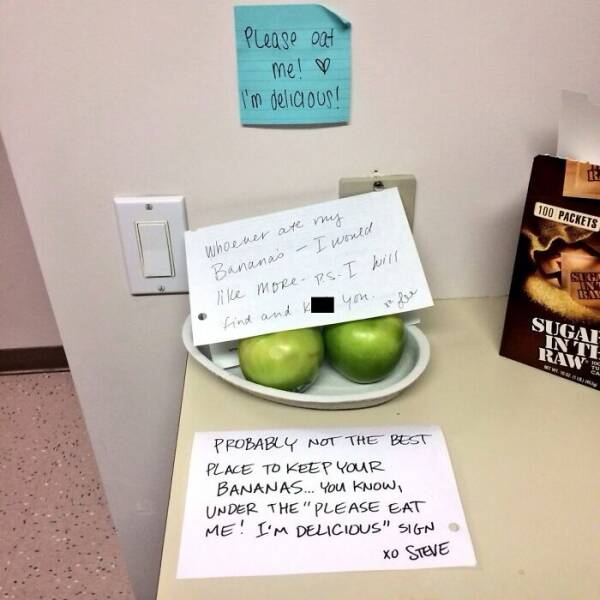 Please eat
me! ♡
I'm delicious!
Whoever ate my
Bananas – I would
like more - P.S. I will
find and k you.
PROBABLY NOT THE BEST
PLACE TO KEEP YOUR
BANANAS... YOU KNOW,
UNDER THE "PLEASE EAT
ME! I'M DELICIOUS" SIGN
XO STEVE
100 PACKETS
SUGAR
IN THE
RAW